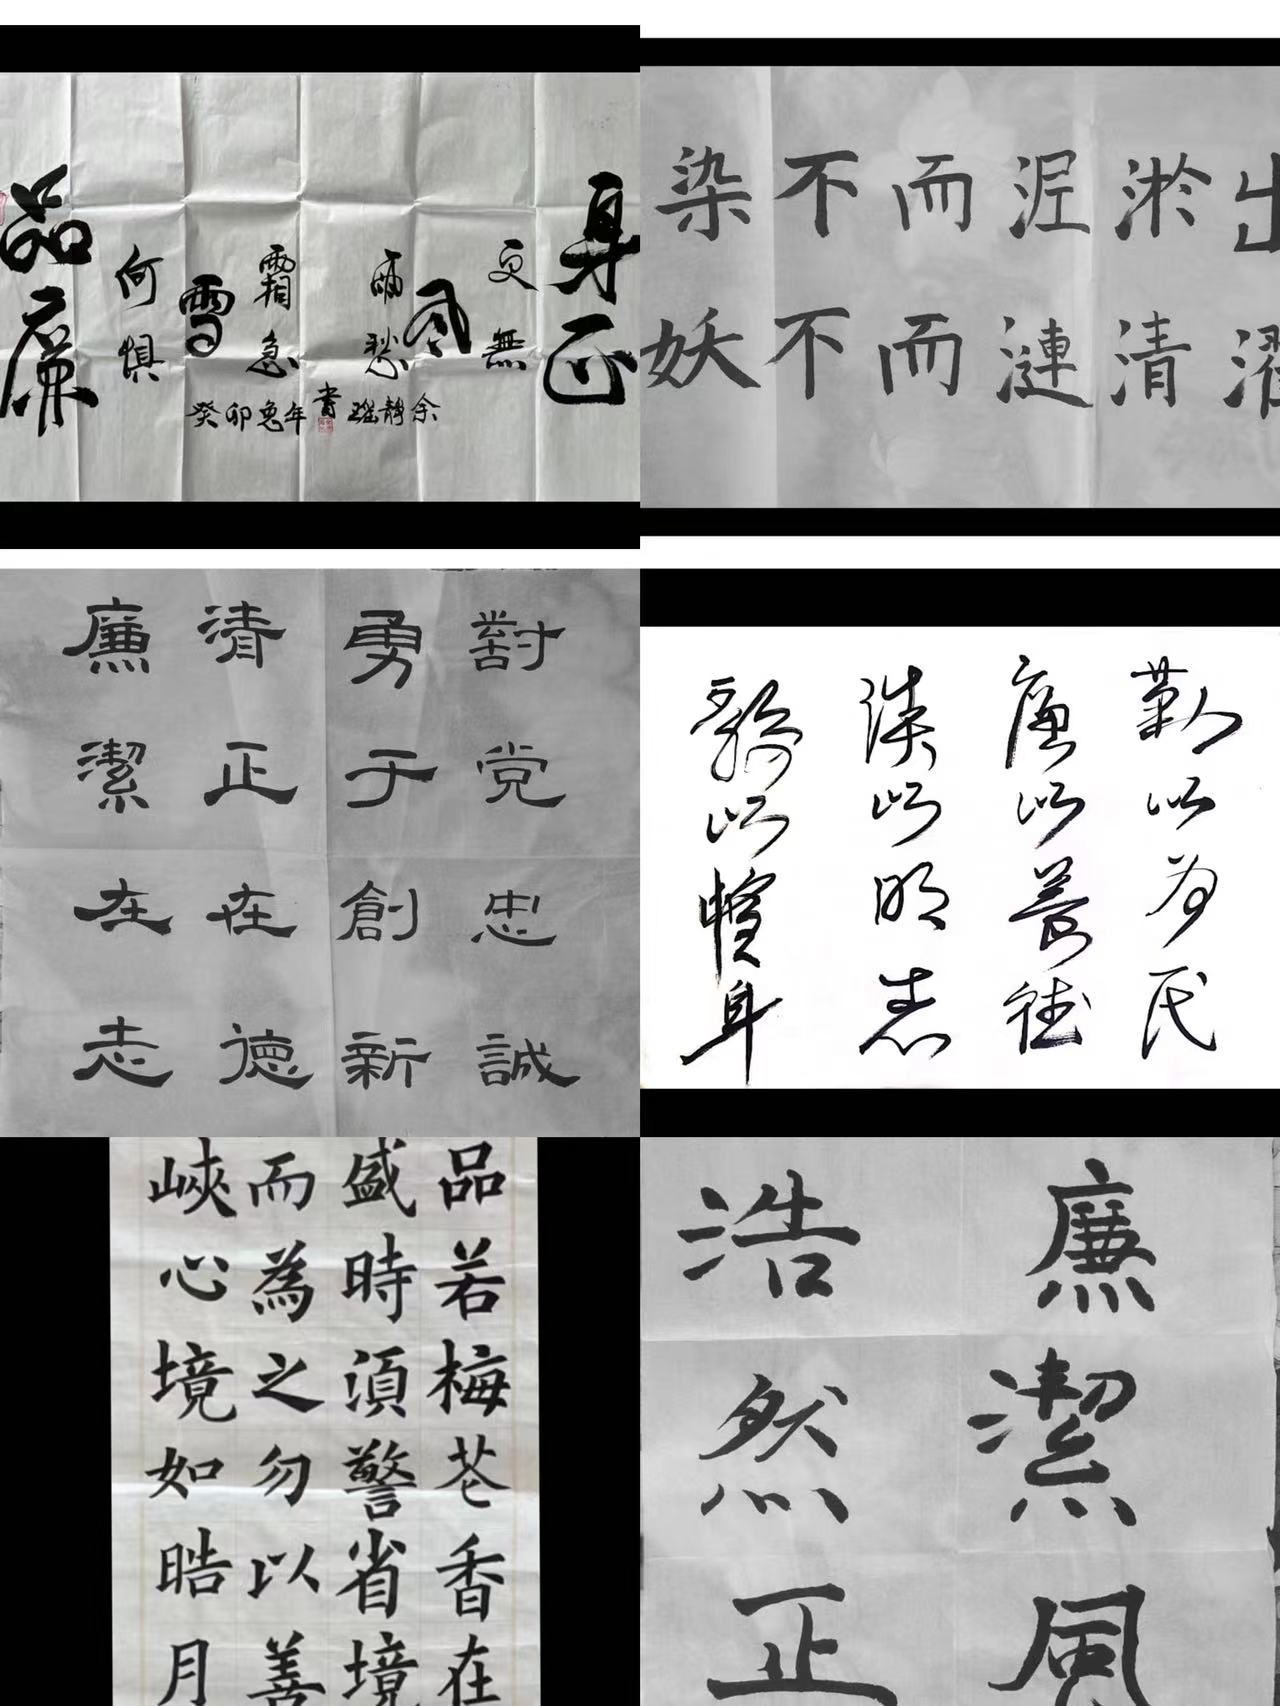 身正
更無
風
雨愁
品廉
何惧
雪
霜急
癸卯兔年
余靜瑶書
出淤泥而不染
濯清漣而不妖
對党忠誠
勇于創新
清正在德
廉潔在志
勤以为民
廉以養德
淡以明志
以身
品若梅花香在
盛時須警省境
而為之勿以善
峽心境如皓月
廉潔風
浩然正